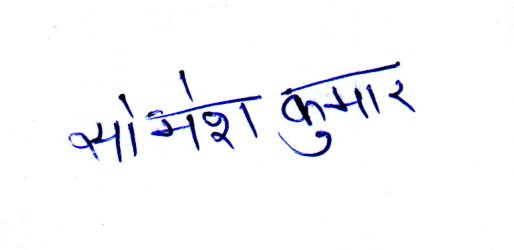 सोमेश कुमार